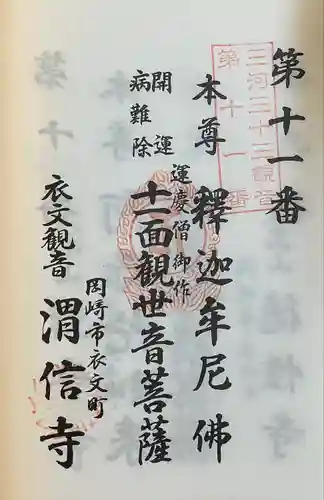 第十一番
三河三十三観音
第十一番
本尊 釋迦牟尼佛
運慶僧御作
開運
病難除
十一面観世音菩薩
岡崎市衣文町
衣文観音 渭信寺